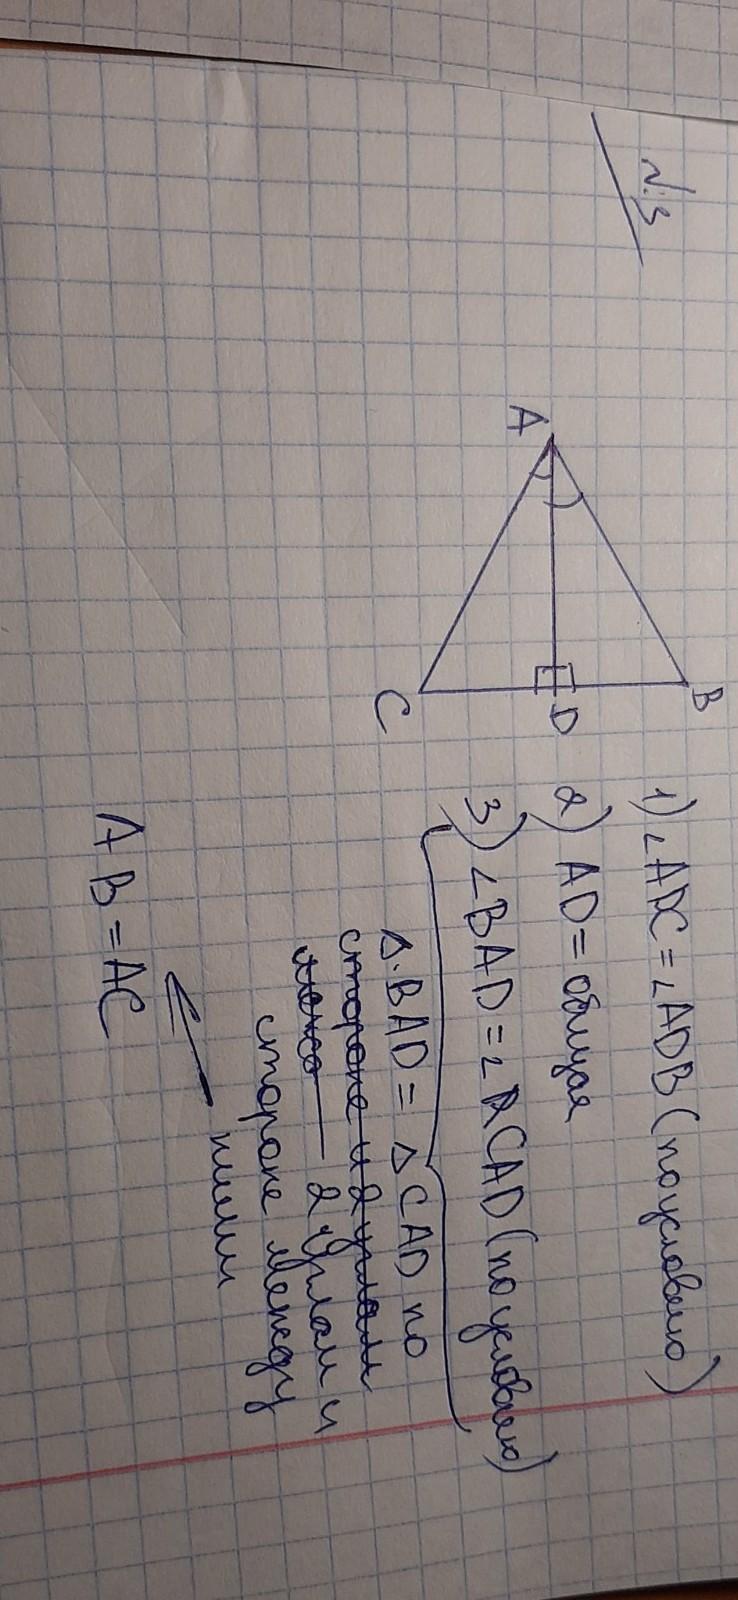 N:3
A
B
D
C
1) ∠ADC = ∠ADB (по условию)
2) AD = общая
3) ∠BAD = ∠CAD (по условию)
Δ BAD = Δ CAD по
стороне и 2 углам
2 углам и
стороне между
ними
AB = AC